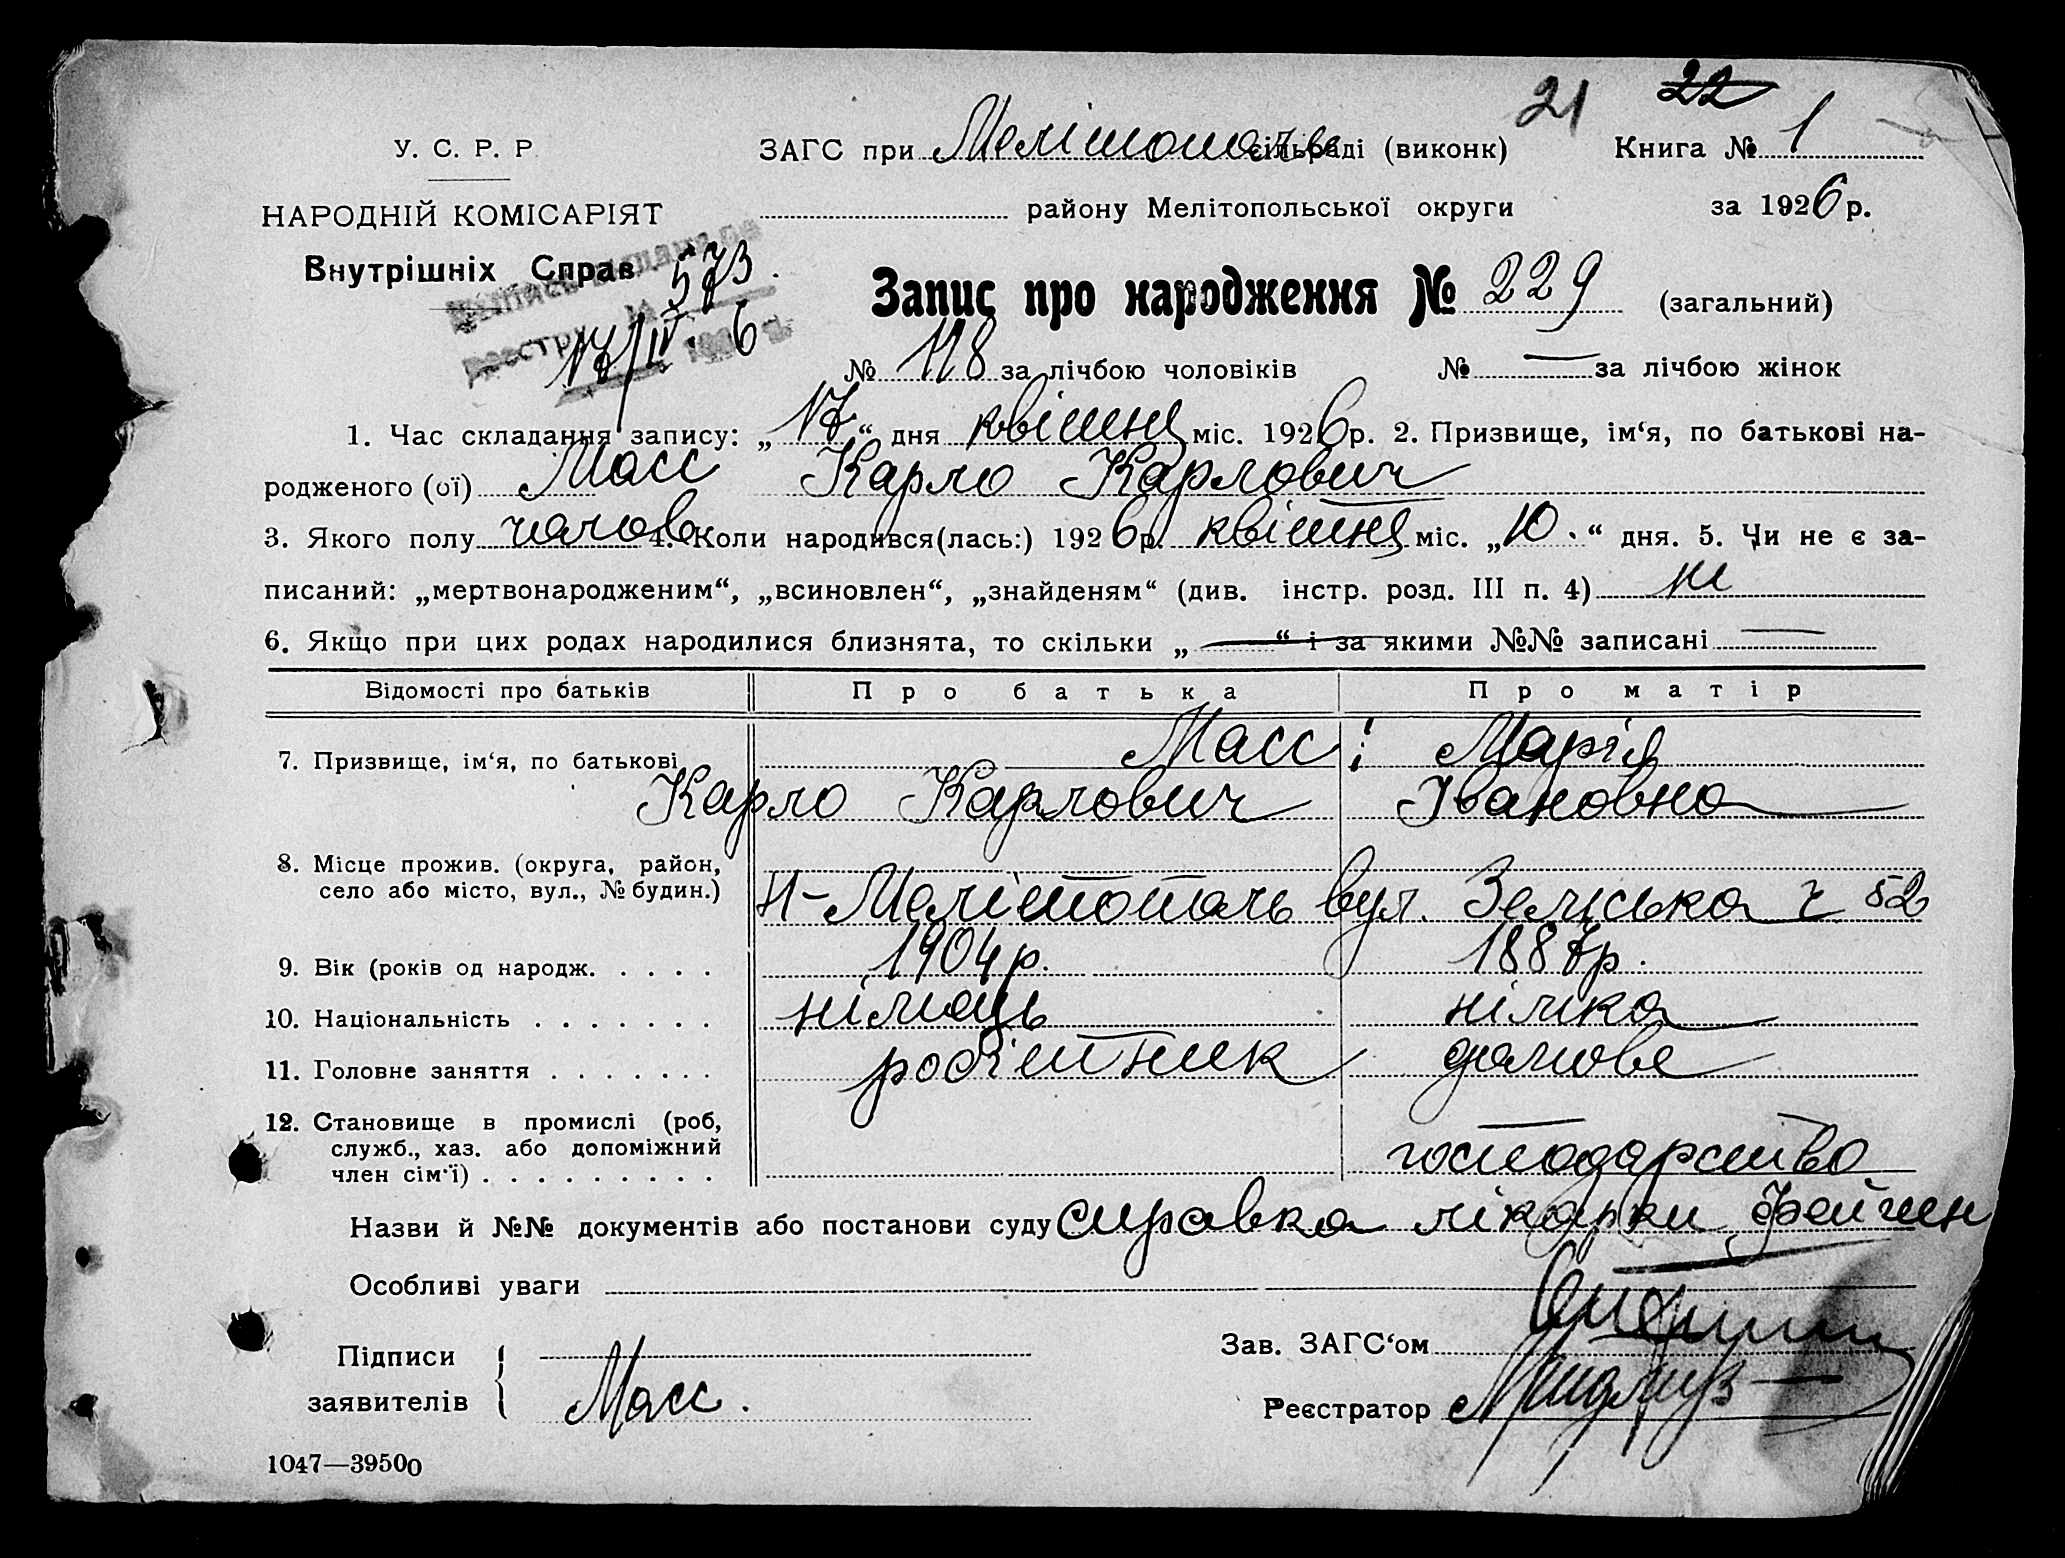 21 22
У. С. Р. Р. ЗАГС при Мелітополь сільраді (виконк) Книга № 1
НАРОДНІЙ КОМІСАРІЯТ району Мелітопольської округи за 1926 р.
Внутрішніх Справ
573
реєстру
17/IV 1926
Запис про народження № 229 (загальний)
№ 118 за лічбою чоловіків № — за лічбою жінок
1. Час складання запису: „17“ дня квітня міс. 1926 р. 2. Призвище, ім‘я, по батькові на-
родженого (ої) Масс Карло Карлович
3. Якого полу чолов. 4. Коли народився(лась:) 1926 р. квітня міс. „10.“ дня. 5. Чи не є за-
писаний: „мертвонародженим“, „всиновлен“, „знайденям“ (див. інстр. розд. III п. 4) ні
6. Якщо при цих родах народилися близнята, то скільки „—“ і за якими №№ записані —
Відомості про батьків Про батька Про матір
7. Призвище, ім‘я, по батькові Масс і Марія
Карло Карлович Івановна
8. Місце прожив. (округа, район,
село або місто, вул., № будин.) Н-Мелітополь вул. Зелська ч 52
9. Вік (років од народж. . . . . 1904 р. 1887 р.
10. Національність . . . . . . . німець німка
11. Головне заняття . . . . . . . робітник домове
12. Становище в промислі (роб,
служб., хаз. або допоміжний
член сім‘ї) . . . . . . . . . господарство
Назви й №№ документів або постанови суду справка лікарки Фейгин
Особливі уваги
Підписи Зав. ЗАГС‘ом
заявителів Масс. Реєстратор
1047—39500